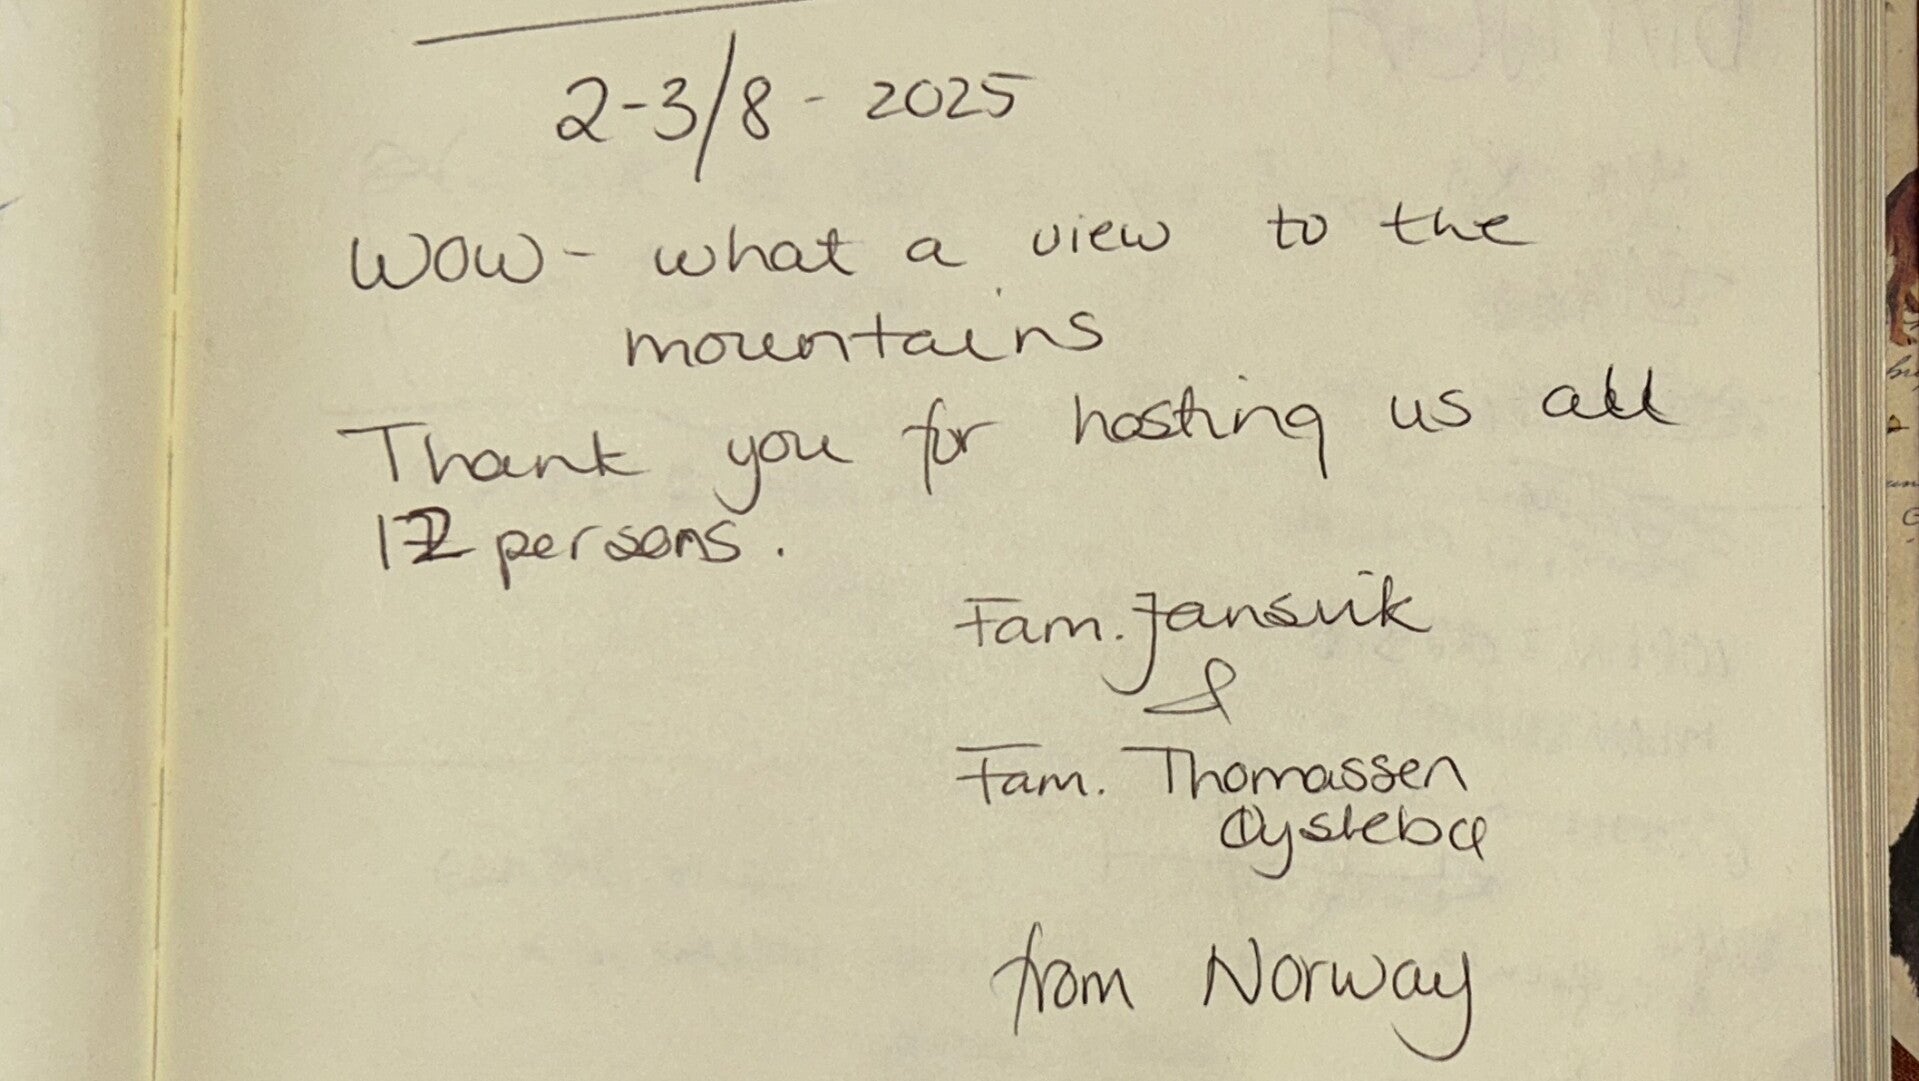 2-3/8 - 2025
WOW - what a view to the
mountains
Thank you for hosting us all
12 persons.
Fam. Jansvik
&
Fam. Thomassen
Øyslebø
from Norway